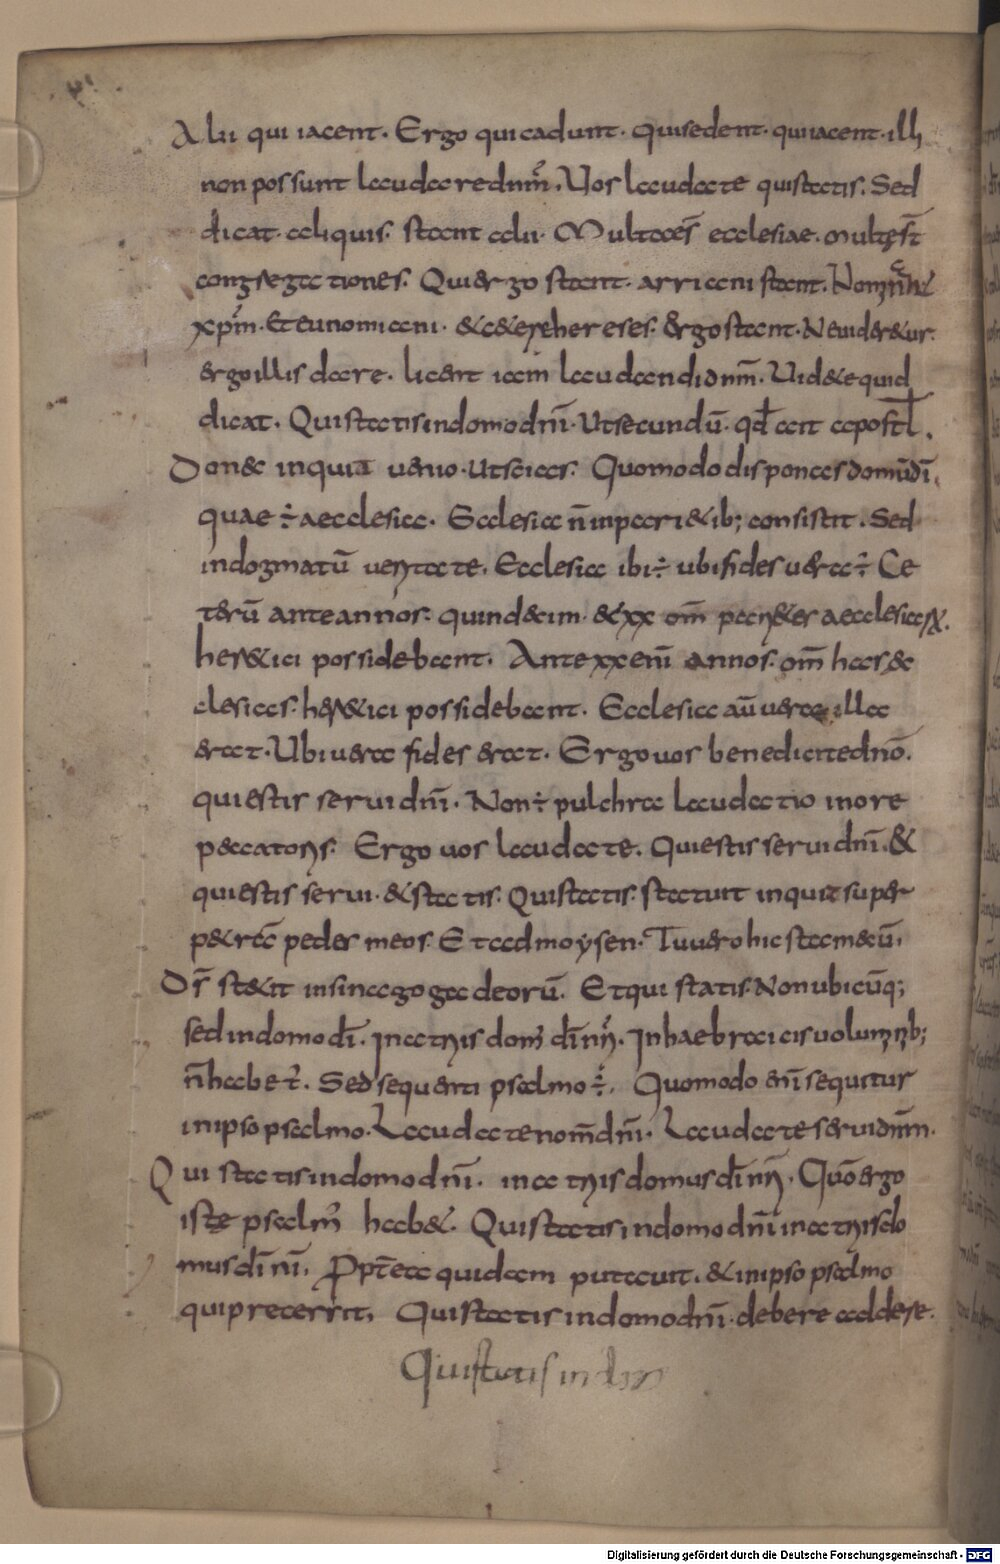 Alii qui iacent. Ergo qui cadunt. qui sedent. qui iacent. illi
non possunt laudare dnm̄. Uos laudate qui statis. Sed
dicat aliquis. stant alii. Multae s̄ ecclesiae. multe st̄
congregationes. Qui ergo stant. arriani stant. Non
xpm̄. Et eunomiani. & c&ere hereses. ergo stant. Ne uider&ur
ergo illis dare. licentiam laudandi dnm̄. Uid&e quid
dicat. Qui statis in domo dnī. Ut secundū. qđ ait apostł.
Donec inquit uenio. Ut scias. Quomodo disponas domū dī.
quae ÷ aecclesia. Ecclesia n̄ in pari&ib; consistit. Sed
in dogmatū ueritate. Ecclesia ibi ÷ ubi fides uera ÷ Ce
terū ante annos. quindecim. & xx om̄ pari&es aecclesiarꝝ.
her&ici possidebant. Ante xx enī annos. om̄ has ec
clesias. her&ici possidebant. Ecclesia aū uera illa
erat. Ubi uera fides erat. Ergo uos benedicite dnō.
qui estis serui dnī. Non ÷ pulchra laudatio in ore
peccatoris. Ergo uos laudate. Qui estis serui dnī. &
qui estis serui. & statis. Qui statis. statuit inquit super
p&rā pedes meos. Et ad moysen. Tu uero hic sta mecū.
Ds̄ st&it in sinagoga deorū. Et qui statis. Non ubicūq;
sed in domo dī. In atriis dom' dī nrī. In haebraicis uoluminib;
n̄ habet̄. Sed sequenti psalmo ÷. Quomodo enī sequitur
in ipso psalmo. Laudate nom̄ dnī. Laudate serui dnm̄.
Qui statis in domo dnī. in atriis domus dī nrī. Quō ergo
iste psalm' hab&. Qui statis in domo dnī in atriis do
mus dī nī. Propt̄ea quidam putauit. & in ipso psalmo
qui preterrit. Qui statis in domo dnī. debere addere.
Qui statis in dom
Digitalisierung gefördert durch die Deutsche Forschungsgemeinschaft - DFG